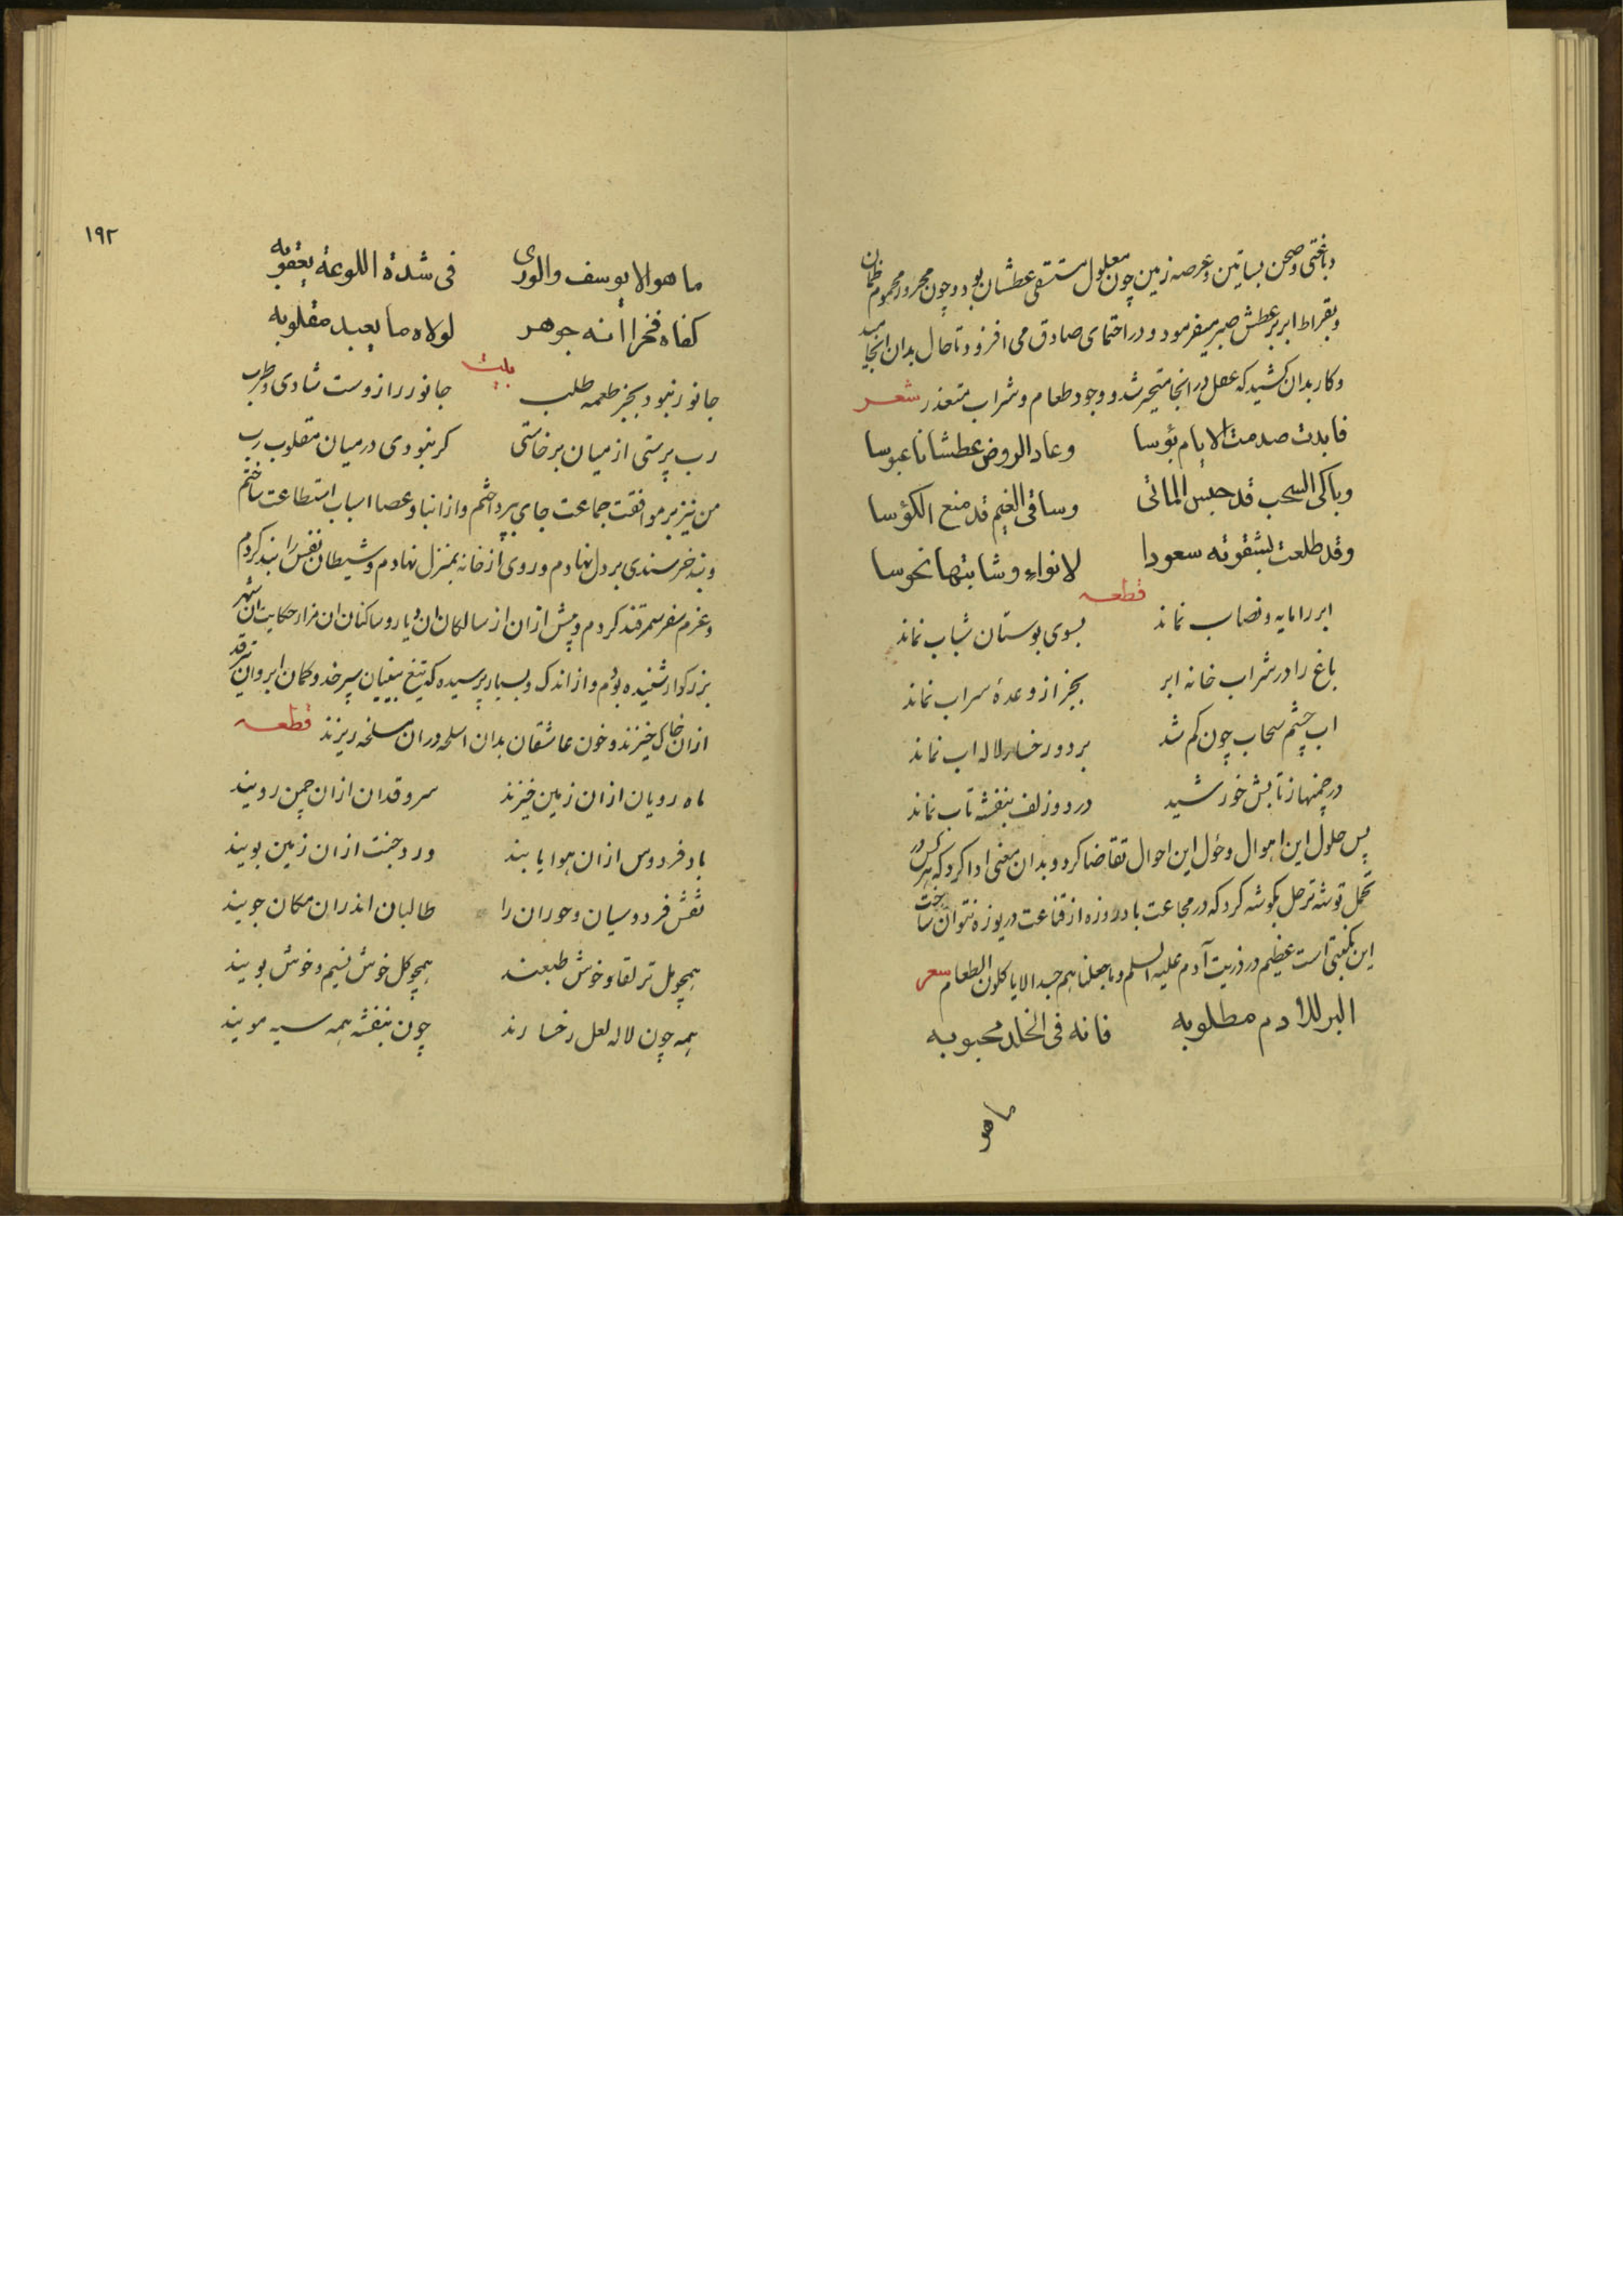 دباغتی وصحن بساتین وعرصه زمین چون معلول مستسقی عطشان بود وچون محرور محموم ظمآن
وبقراط ابر بر عطش صبر میفرمود ودر احتمای صادق می افزود تا حال بدان انجامید
وکار بدان کشید که عقل در انجا متحیر شد ووجود طعام وشراب متعذر شعر
فابدت صدمت الایام بؤسا وعاد الروض عطشانا عبوسا
وباکی السحب قد حبس الماقی وساقی الغیم قد منع الکؤسا
وقد طلعت لشقوته سعودا لانواء وشابتها نحوسا
قطعه
ابر را مایه ونصاب نماند بسوی بوستان شباب نماند
باغ را در شراب خانه ابر بجز از وعدۀ سراب نماند
اب چشم سحاب چون کم شد بر دو رخسار لاله اب نماند
در چمنها ز تابش خورشید در دو زلف بنفشه تاب نماند
پس حلول این اهوال وحؤل این احوال تقاضا کرد وبدان معنی ادا کرد که هر کس در
تحمل توشه ترحل بکوشه کرد که در مجاعت با دروزه از قناعت دریوزه نتوان ساخت
این نکبتی است عظیم در ذریت آدم علیه السلم وما جعلناهم جسدا لا یاکلون الطعام شعر
البر للادم مطلوبه فانه فی الخلد محبوبه
ما هو
۱۹۲
ما هو الا یوسف والوری فی شدة اللوعة یعقوبه
کفاه فخرا انه جوهر لولاه ما یعبد مقلوبه
بیت
جانور نبود بجز طعمه طلب جانور را زوست شادی وطرب
رب پرستی از میان برخاستی کر نبودی در میان مقلوب رب
من نیز بر موافقت جماعت جای بپرداختم واز انبا وعصا اسباب استطاعت ساختم
وبند خرسندی بر دل نهادم وروی از خانه بمنزل نهادم وشیطان نفس را بند کردم
وعزم سفر سمرقند کردم وپیش ازان از سالکان ان دیار وساکنان ان مزار حکایت ان شهر
بزرکوار شنیده بودم واز اندک وبسیار پرسیده که تیغ بینیان سپر خد وکمان ابروان تیر قد
ازان خاک خیزند وخون عاشقان بدان اسلحه دران مسلخه ریزند قطعه
ماه رویان ازان زمین خیزند سرو قدان ازان چمن رویند
باد فردوس ازان هوا یابند ورد جنت ازان زمین بویند
نقش فردوسیان وحوران را طالبان اندران مکان جویند
همچو مل تر لقا وخوش طبعند همچو کل خوش نسیم وخوش بویند
همه چون لاله لعل رخسارند چون بنفشه همه سیه مویند